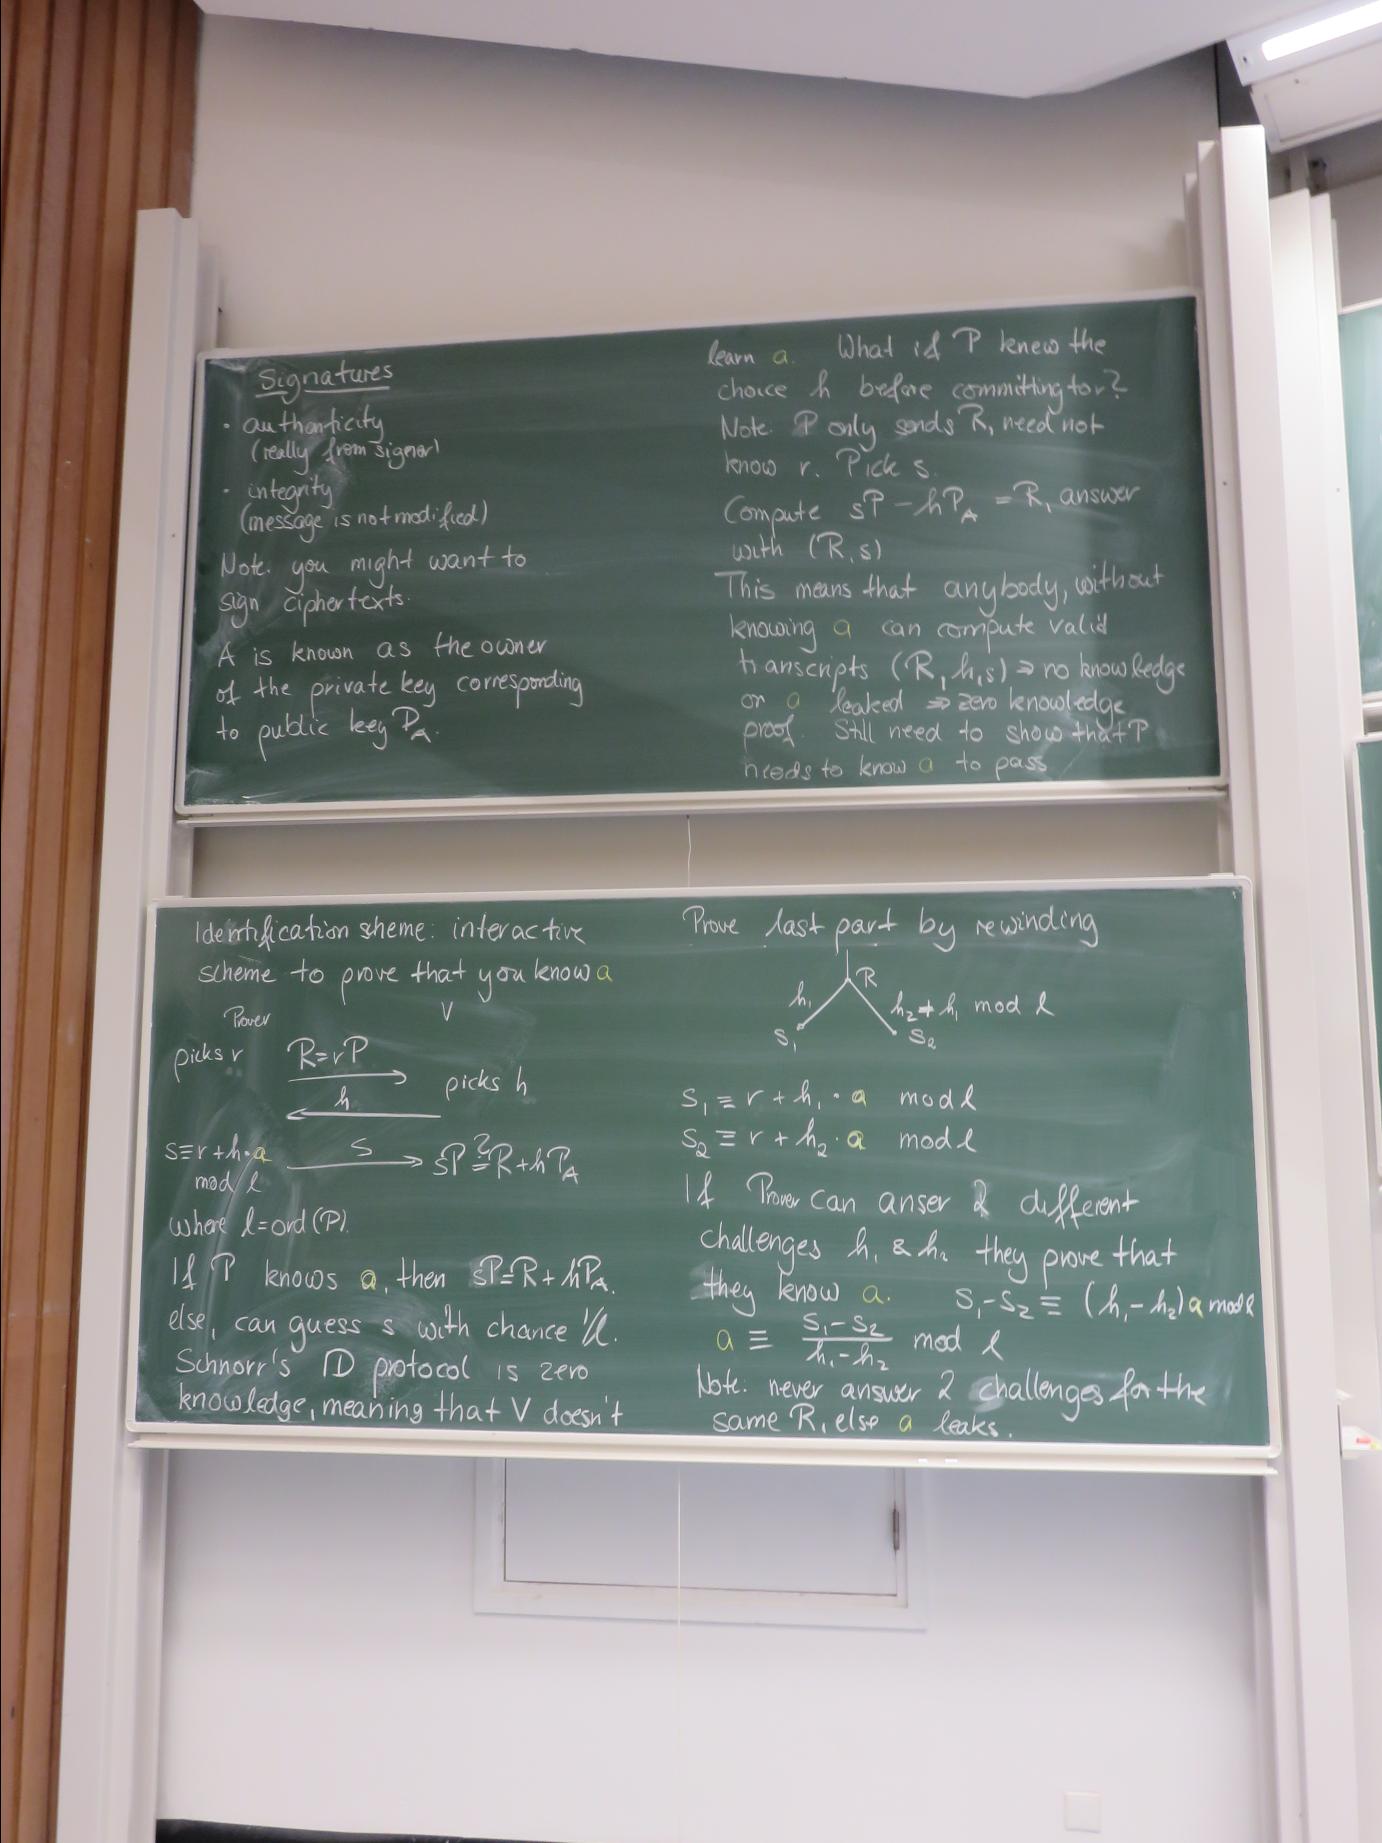 Signatures
• authenticity
(really from signer)
• integrity
(message is not modified)
Note. you might want to
sign ciphertexts.
A is known as the owner
of the private key corresponding
to public key P_A.
Identification sheme: interactive
scheme to prove that you know a
Prover V
picks r R=rP
picks h
h
s≡r+h·a s sP ≟ R+hP_A
mod l
where l=ord(P).
If P knows a, then sP=R+hP_A.
else, can guess s with chance 1/l.
Schnorr's ID protocol is zero
knowledge, meaning that V doesn't
learn a. What if P knew the
choice h before committing to r?
Note: P only sends R, need not
know r. Pick s.
Compute sP - hP_A = R, answer
with (R,s)
This means that anybody, without
knowing a can compute valid
transcripts (R,h,s) ⇒ no knowledge
on a leaked ⇒ zero knowledge
proof. Still need to show that P
needs to know a to pass
Prove last part by rewinding
R
h₁ h₂ ≢ h₁ mod l
s₁ s₂
s₁ ≡ r + h₁ · a mod l
s₂ ≡ r + h₂ · a mod l
If Prover can anser 2 different
challenges h₁ & h₂ they prove that
they know a. s₁-s₂ ≡ (h₁-h₂)a mod l
a ≡ (s₁-s₂)/(h₁-h₂) mod l
Note: never answer 2 challenges for the
same R, else a leaks.